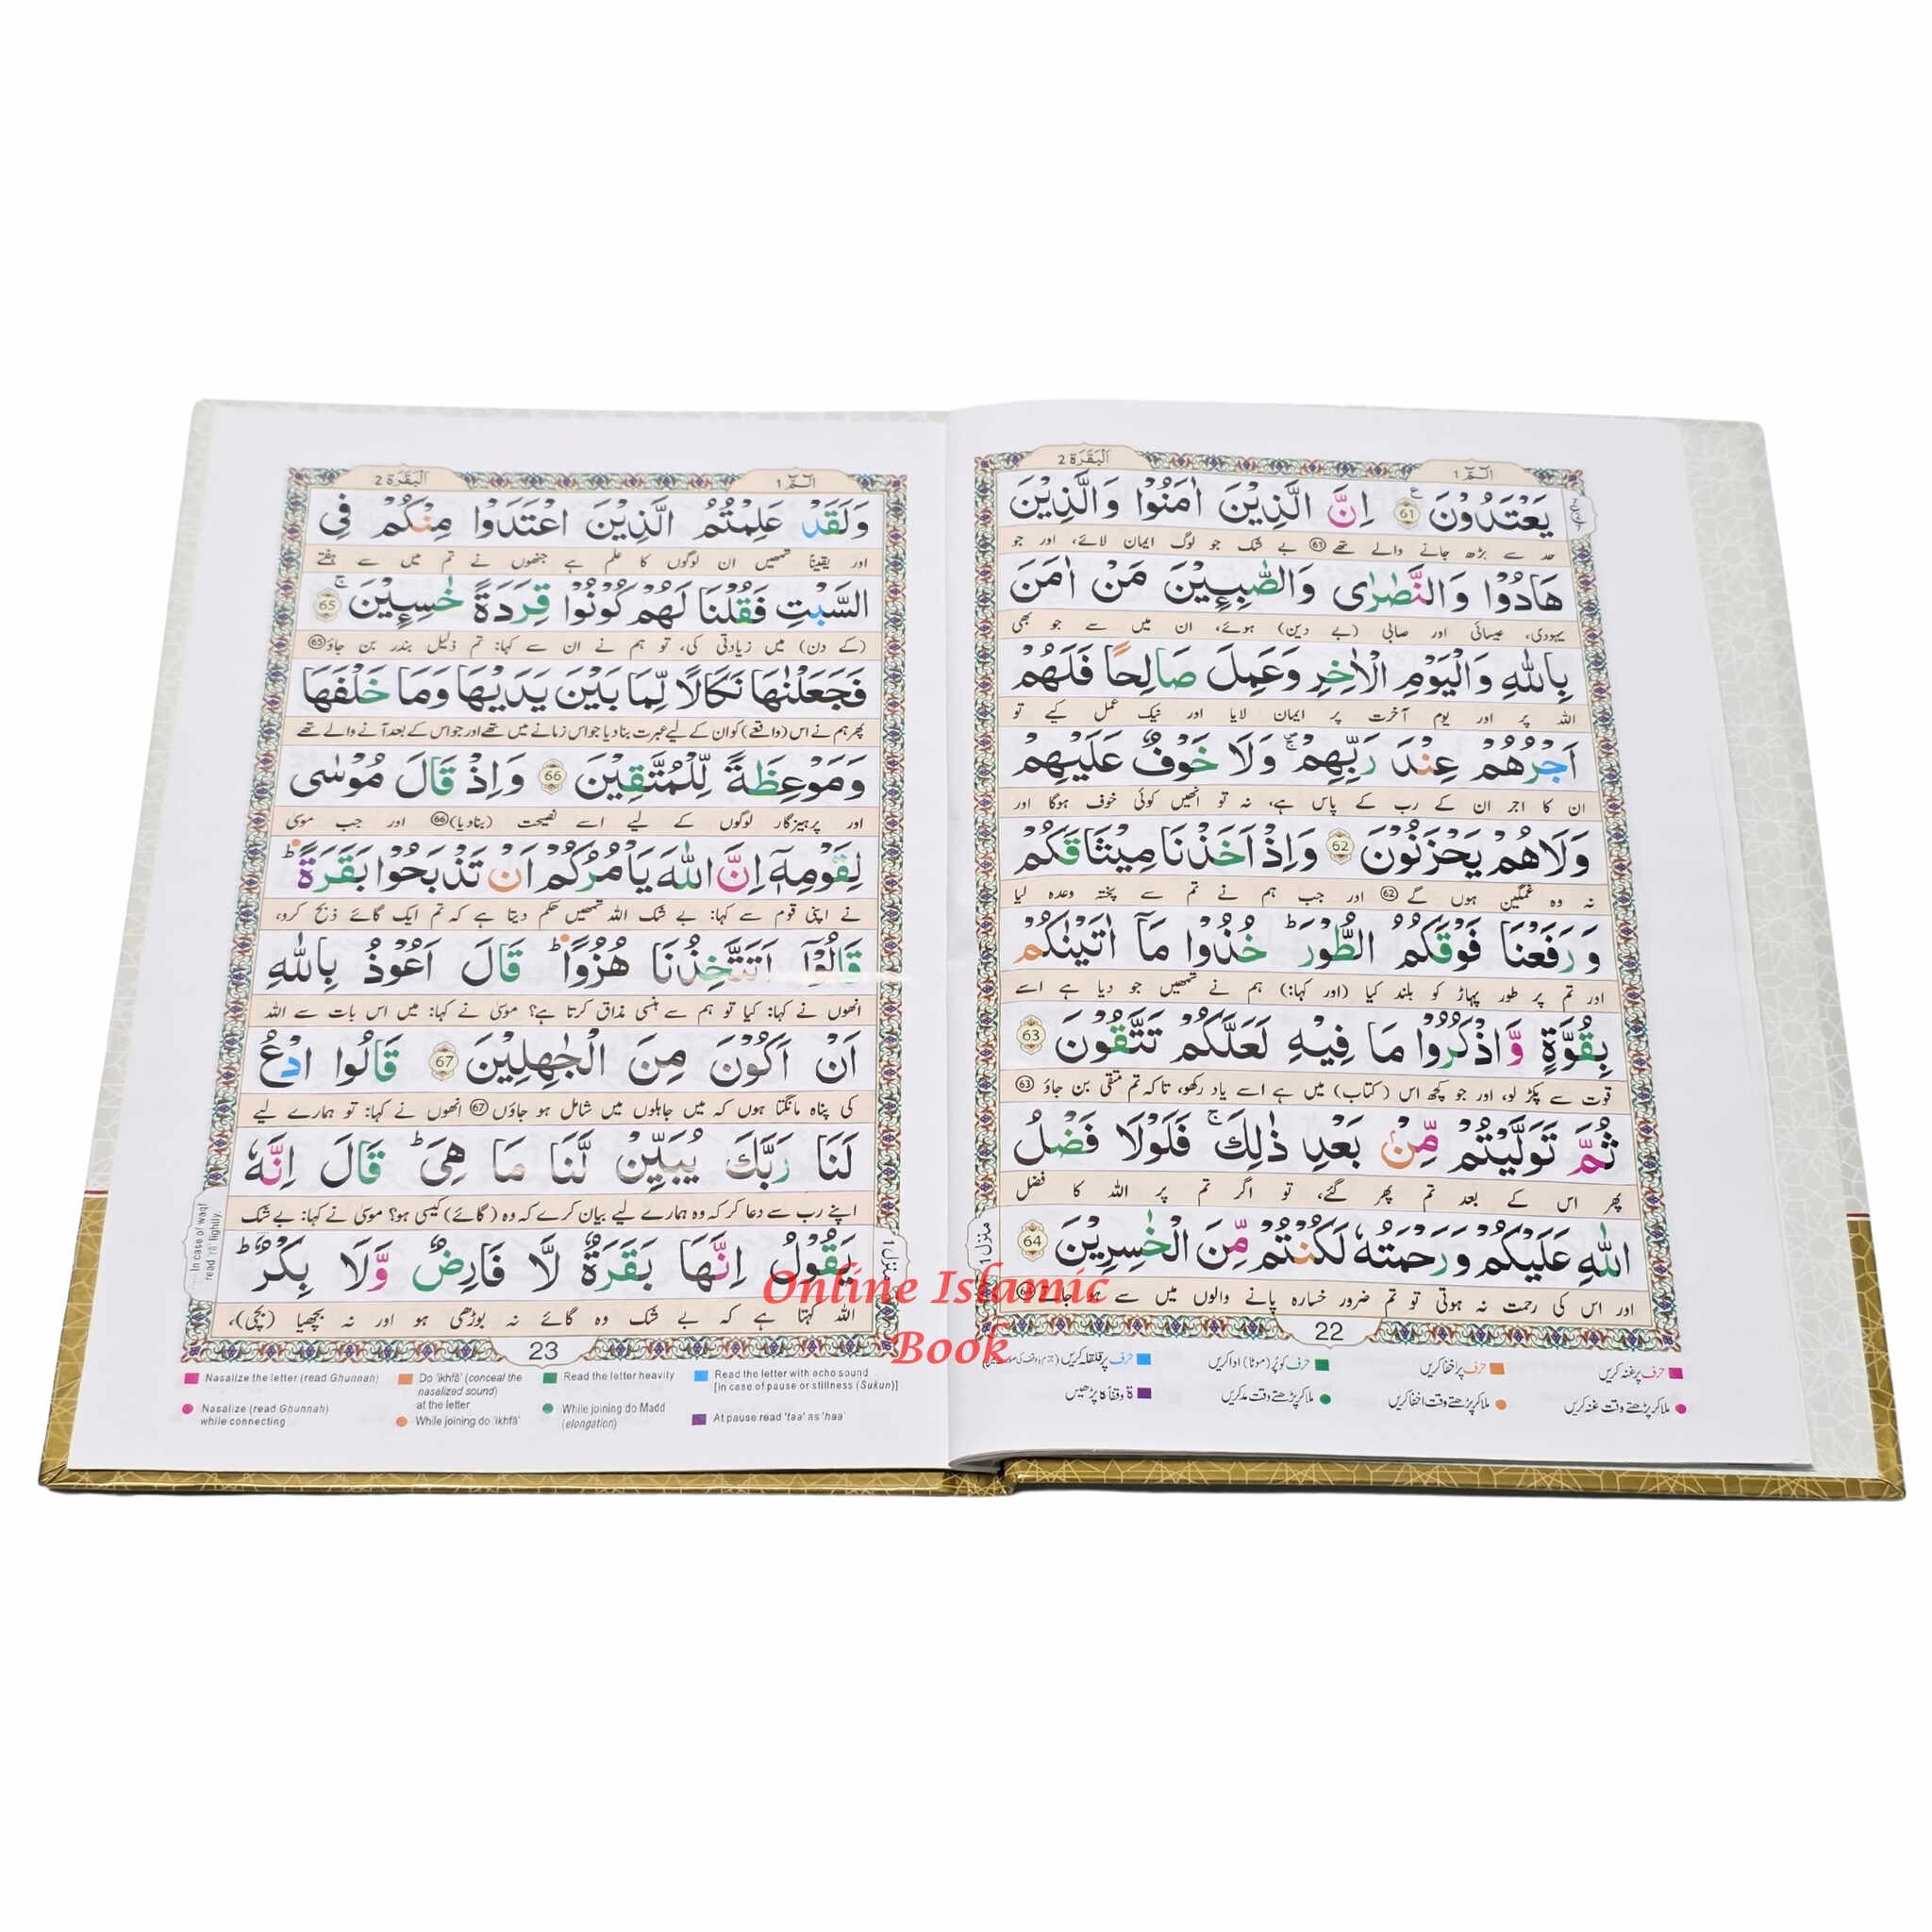 الٓـمّٓ 1
اَلْبَقَرَة 2
يَعْتَدُوْنَ 61 اِنَّ الَّذِيْنَ اٰمَنُوْا وَالَّذِيْنَ
حد سے بڑھ جانے والے تھے 61 بے شک جو لوگ ایمان لائے، اور جو
هَادُوْا وَالنَّصٰرٰى وَالصّٰبِـِٕيْنَ مَنْ اٰمَنَ
یہودی، عیسائی اور صابی (بے دین) ہوئے، ان میں سے جو بھی
بِاللّٰهِ وَالْيَوْمِ الْاٰخِرِ وَعَمِلَ صَالِحًا فَلَهُمْ
اللہ پر اور یوم آخرت پر ایمان لایا اور نیک عمل کیے تو
اَجْرُهُمْ عِنْدَ رَبِّهِمْ ۚ وَلَا خَوْفٌ عَلَيْهِمْ
ان کا اجر ان کے رب کے پاس ہے، نہ تو انھیں کوئی خوف ہوگا اور
وَلَا هُمْ يَحْزَنُوْنَ 62 وَاِذْ اَخَذْنَا مِيْثَاقَكُمْ
نہ وہ غمگین ہوں گے 62 اور جب ہم نے تم سے پختہ وعدہ لیا
وَرَفَعْنَا فَوْقَكُمُ الطُّوْرَ ؕ خُذُوْا مَاۤ اٰتَيْنٰكُمْ
اور تم پر طور پہاڑ کو بلند کیا (اور کہا:) ہم نے تمھیں جو دیا ہے اسے
بِقُوَّةٍ وَّاذْكُرُوْا مَا فِيْهِ لَعَلَّكُمْ تَتَّقُوْنَ 63
قوت سے پکڑ لو، اور جو کچھ اس (کتاب) میں ہے اسے یاد رکھو، تاکہ تم متقی بن جاؤ 63
ثُمَّ تَوَلَّيْتُمْ مِّنْۢ بَعْدِ ذٰلِكَ ۚ فَلَوْلَا فَضْلُ
پھر اس کے بعد تم پھر گئے، تو اگر تم پر اللہ کا فضل
اللّٰهِ عَلَيْكُمْ وَرَحْمَتُهٗ لَكُنْتُمْ مِّنَ الْخٰسِرِيْنَ 64
اور اس کی رحمت نہ ہوتی تو تم ضرور خسارہ پانے والوں میں سے ہو جاتے 64
منزل 1
22
حرف پر غنہ کریں
حرف پر اخفا کریں
حرف کو پُر (موٹا) ادا کریں
حرف پر قلقلہ کریں
ملا کر پڑھتے وقت غنہ کریں
ملا کر پڑھتے وقت اخفا کریں
ملا کر پڑھتے وقت مد کریں
ة وقفاً ہ پڑھیں
الٓـمّٓ 1
اَلْبَقَرَة 2
وَلَقَدْ عَلِمْتُمُ الَّذِيْنَ اعْتَدَوْا مِنْكُمْ فِى
اور یقیناً تمھیں ان لوگوں کا علم ہے جنھوں نے تم میں سے ہفتے
السَّبْتِ فَقُلْنَا لَهُمْ كُوْنُوْا قِرَدَةً خٰسِـِٕيْنَ ۚ 65
(کے دن) میں زیادتی کی، تو ہم نے ان سے کہا: تم ذلیل بندر بن جاؤ 65
فَجَعَلْنٰهَا نَكَالًا لِّمَا بَيْنَ يَدَيْهَا وَمَا خَلْفَهَا
پھر ہم نے اس (واقعے) کو ان کے لیے عبرت بنادیا جو اس زمانے میں تھے اور جو اس کے بعد آنے والے تھے
وَمَوْعِظَةً لِّلْمُتَّقِيْنَ 66 وَاِذْ قَالَ مُوْسٰى
اور پرہیزگار لوگوں کے لیے اسے نصیحت (بنادیا) 66 اور جب موسیٰ
لِقَوْمِهٖۤ اِنَّ اللّٰهَ يَاْمُرُكُمْ اَنْ تَذْبَحُوْا بَقَرَةً ؕ
نے اپنی قوم سے کہا: بے شک اللہ تمھیں حکم دیتا ہے کہ تم ایک گائے ذبح کرو،
قَالُوْۤا اَتَتَّخِذُنَا هُزُوًا ؕ قَالَ اَعُوْذُ بِاللّٰهِ
انھوں نے کہا: کیا تو ہم سے ہنسی مذاق کرتا ہے؟ موسیٰ نے کہا: میں اس بات سے اللہ
اَنْ اَكُوْنَ مِنَ الْجٰهِلِيْنَ 67 قَالُوا ادْعُ
کی پناہ مانگتا ہوں کہ میں جاہلوں میں شامل ہو جاؤں 67 انھوں نے کہا: تو ہمارے لیے
لَنَا رَبَّكَ يُبَيِّنْ لَّنَا مَا هِىَ ؕ قَالَ اِنَّهٗ
اپنے رب سے دعا کر کہ وہ ہمارے لیے بیان کرے کہ وہ (گائے) کیسی ہو؟ موسیٰ نے کہا: بے شک
يَقُوْلُ اِنَّهَا بَقَرَةٌ لَّا فَارِضٌ وَّلَا بِكْرٌ ؕ
اللہ کہتا ہے کہ بے شک وہ گائے نہ بوڑھی ہو اور نہ بچھیا (بچی)،
منزل 1
In case of waqf
read 'rā' lightly.
23
Nasalize the letter (read Ghunnah)
Do 'ikhfā' (conceal the
nasalized sound)
at the letter
Read the letter heavily
Read the letter with echo sound
[in case of pause or stillness (Sukun)]
Nasalize (read Ghunnah)
while connecting
While joining do 'ikhfā'
While joining do Madd
(elongation)
At pause read 'taa' as 'haa'
Online Islamic
Book